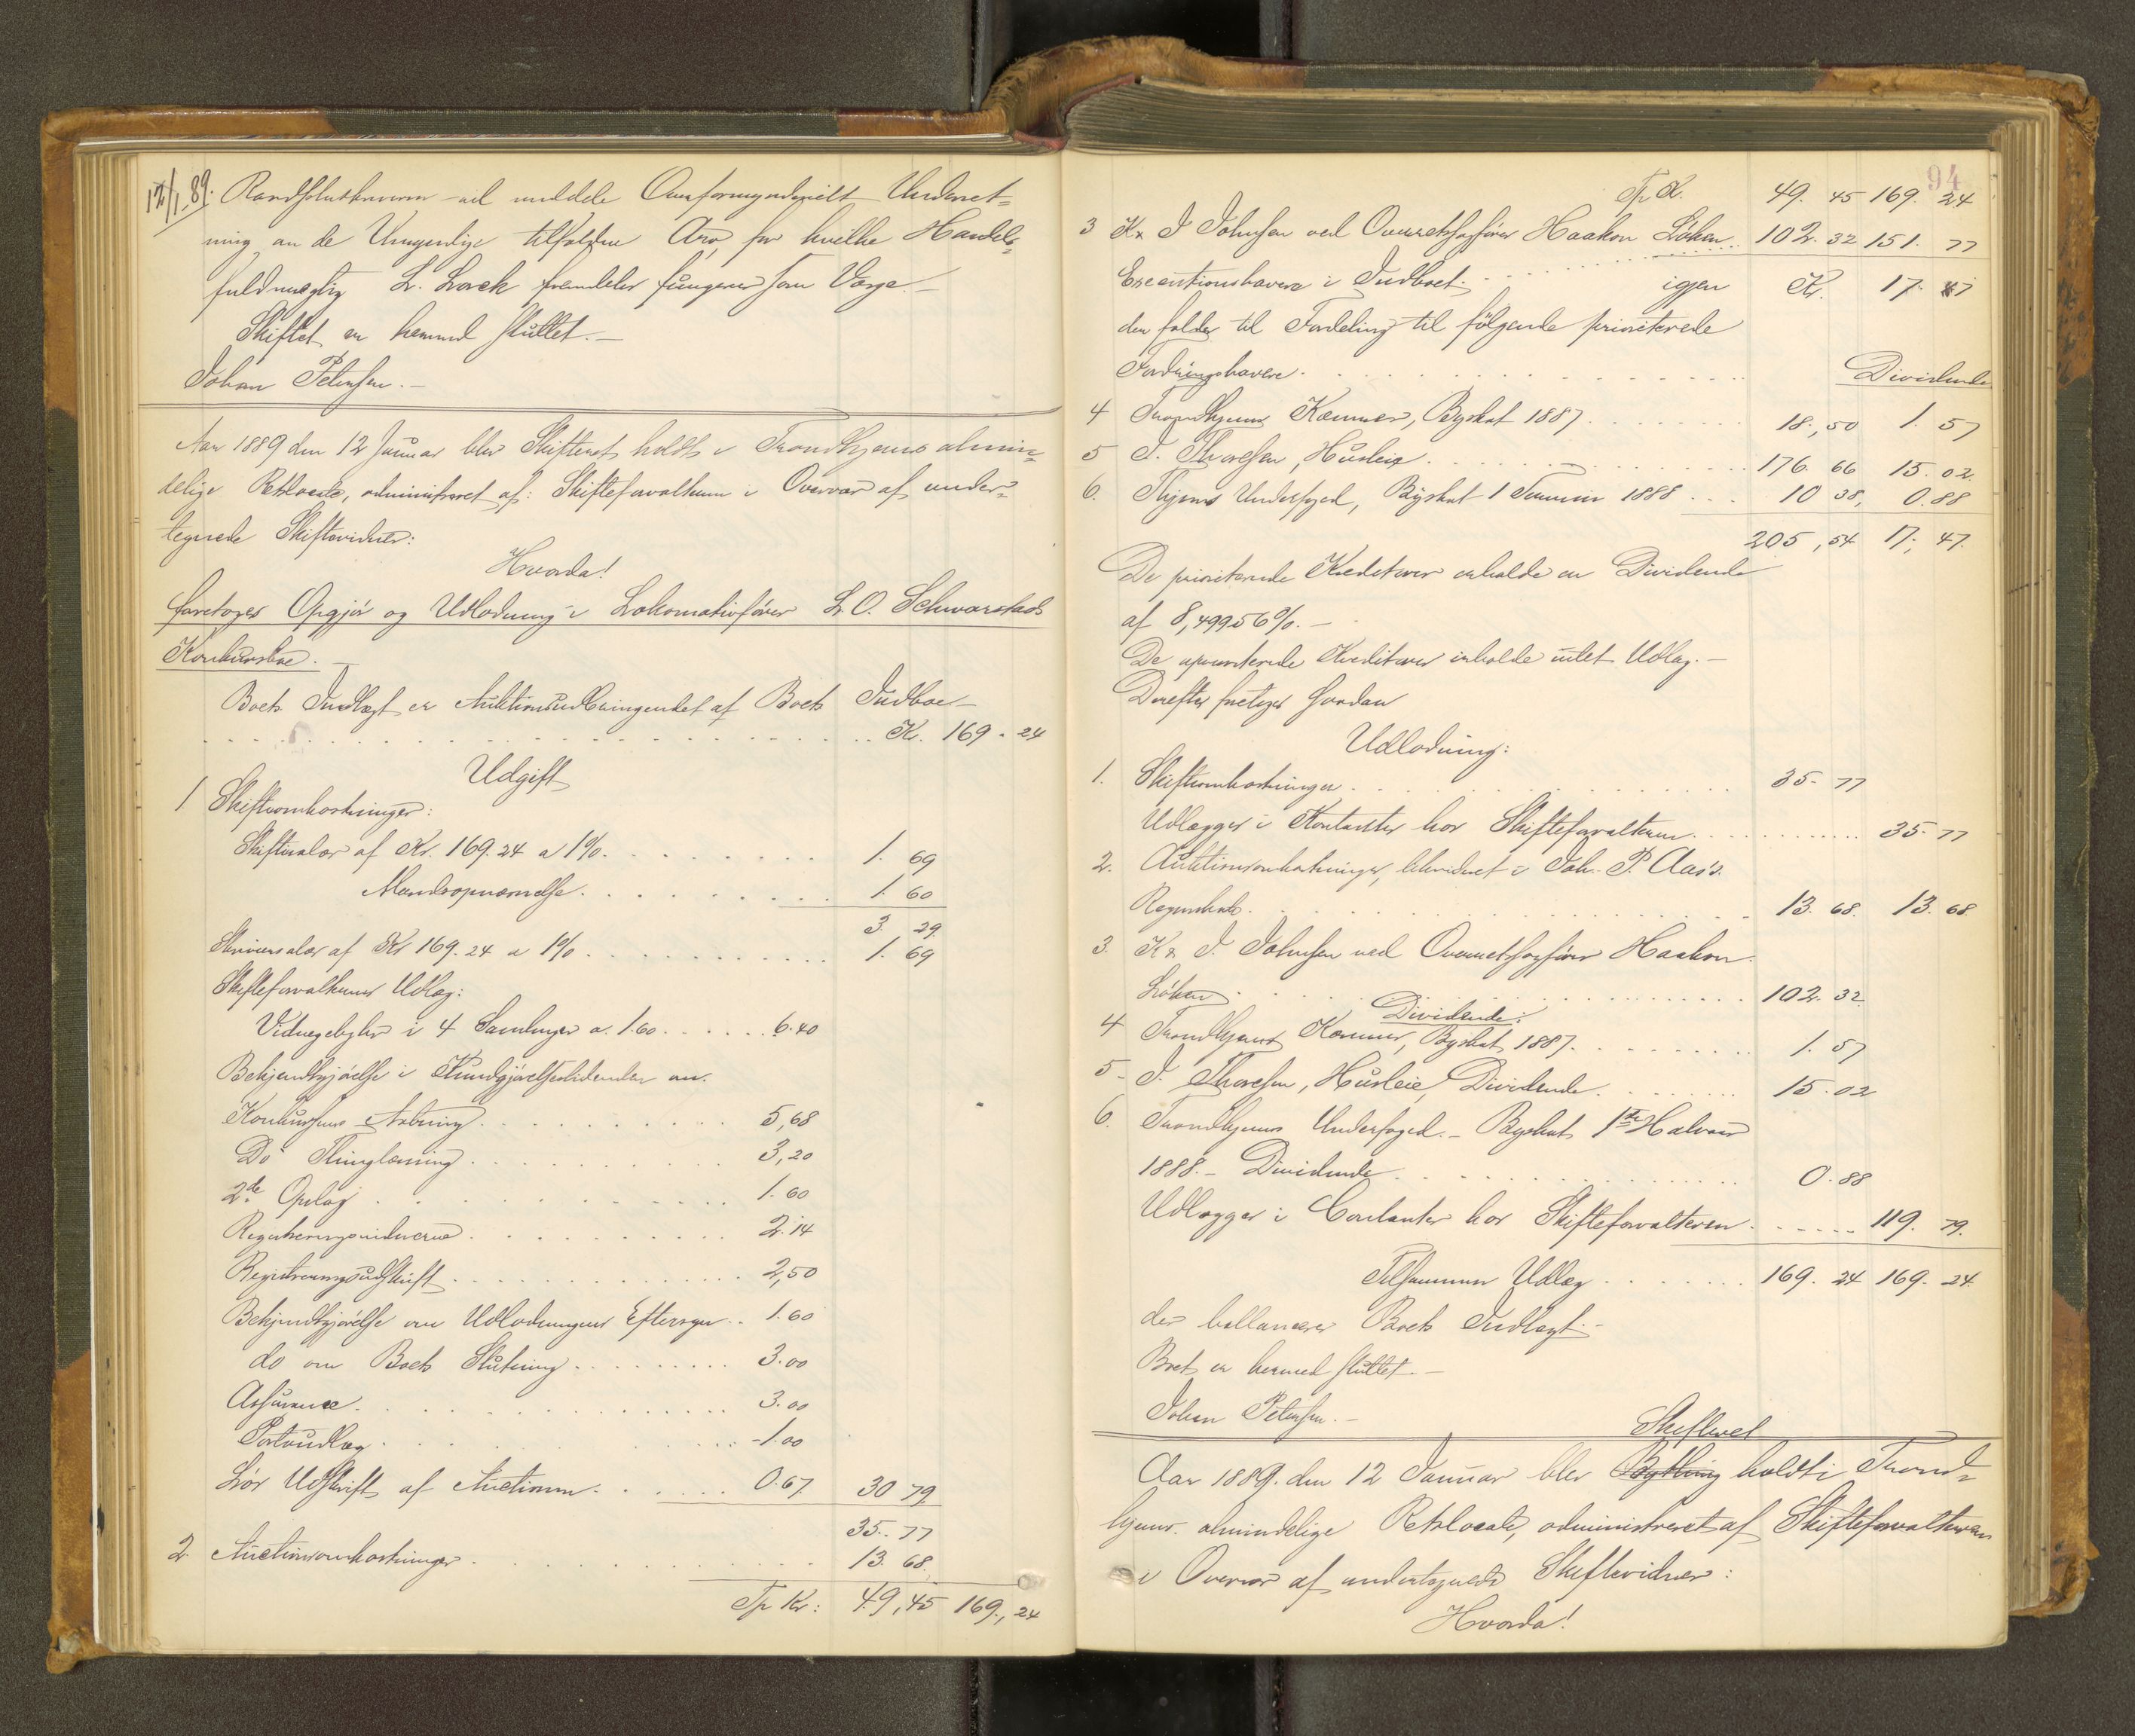 12/1 89. Randsfoluttkunnen vil meddele Overformynderiet Underret-
ning om de Umyndige tilfaldne Arv, for hvilke Handels-
fuldmægtig L. Lorck fremdeles fungerer som Værge.-
Skiftet er hermed sluttet.-
Johan Petersen.-
Aar 1889 den 12 Januar blev Skifteret holdt i Trondhjems almin-
delige Retslocale, administreret af: Skifteforvalteren i Overvær af under-
tegnede Skiftevidner:
Hvorda!
foretoges Opgjör og Udlodning i Lokomotivförer L. O. Schwarstads
Konkursbo.-
Boets Indtægt er Auktionsudbringendet af Boets Indbo-
Kr. 169.24
Udgift
1 Skifteomkostninger:
Skiftesalær af Kr. 169.24 a 1%. 1. 69
Mandsopnævnelse. 1. 60
3. 29.
Skriversalær af Kr 169.24 a 1%. 1. 69
Skifteforvalterens Udlæg:
Vidnegebyhr i 4 Samlinger a. 1.60. 6.40
Bekjendtgjörelse i Kundgjörelsestidenden om.
Konkursens Aabning. 5,68
Do Thinglæsning. 3,20
2de Opslag. 1.60
Registreringsvidnerne. 2.14
Registreringsudskrift. 2,50
Bekjendtgjörelse om Udlodningens Eftersyn.. 1.60
do om Boets Slutning. 3.00
Assurance. 3.00
Portoudlæg. 1.00
Lös Udskrift af Auctionen. 0.67. 30 79
35. 77
2. Auctionsomkostninger. 13. 68.
Tp Kr: 49,45 169,24
94
Tp Kr. 49. 45 169. 24
3 Kr J Johnsen ved Overretssagförer Haakon Löken.. 102. 32 151. 77
Executionshavere i Indboet. igjen Kr. 17. 47
der falder til Fordeling til fölgende prioriterede
Fordringshavere. Dividende
4 Trondhjems Kæmner, Byskat 1887. 18.,50 1. 57
5 J. Thoresen, Husleie. 176. 66 15. 02.
6. Thjems Underfoged, Byskat 1 Termin 1888. 10 38, 0.88
205,54 17,47.
De prioriterede Kreditorer erholde en Dividende
af 8,49956%.-
De uprioriterede Kreditorer erholde intet Udlæg.-
Derefter foretoges saadan
Udlodning:
1. Skifteomkostninger. 35. 77
Udlægges i Kontanter hos Skifteforvalteren. 35. 77
2. Auktionsomkostninger, likvideret i Joh. P. Aas's.
Regnskab. 13. 68. 13. 68.
3. Kr J. Johnsen ved Overretssagförer Haakon
Löken. 102. 32
Dividende:
4 Trondhjems Kæmner, Byskat 1887. 1. 57
5- J. Thoresen, Husleie, Dividende. 15.02
6. Trondhjems Underfoged.- Byskat 1ste Halvaar
1888.- Dividende. 0.88
Udlægges i Contanter hos Skifteforvalteren. 119. 79.
Tilsammen Udlæg. 169. 24 169. 24.
der ballancerer Boets Indtægt.-
Boet er hermed sluttet.-
Johan Petersen.-
Skifteret
Aar 1889. den 12 Januar blev Bything holdt i Trond-
hjems. almindelige Retslocale, administreret af Skifteforvalteren
i Overvær af undertegnede Skiftevidner:
Hvorda!